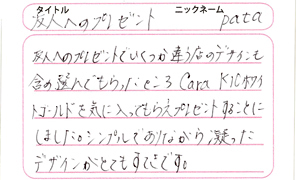 タイトル ニックネーム
友人へのプレゼント pata
友人へのプレゼントでいくつか違う店のデザインも
含め選んでもらったところ Cara K10ホワイ
トゴールドを気に入ってもらえプレゼントすることに
しました。シンプルでありながら凝った
デザインがとてもすてきです。